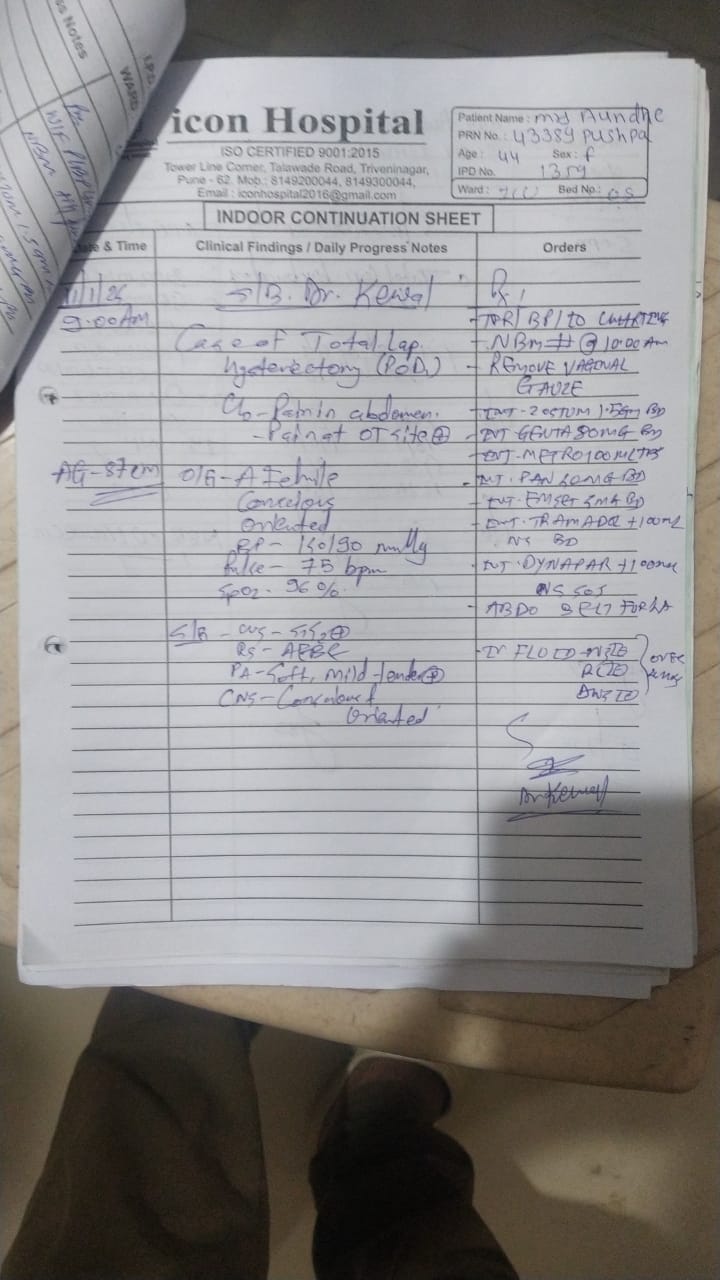 icon Hospital
ISO CERTIFIED 9001:2015
Tower Line Corner, Talawade Road, Triveninagar,
Pune - 62. Mob.: 8149200044, 8149300044,
Email : iconhospital2016@gmail.com
Patient Name : mrs Aundhe
PRN No. : 43389 pushpa
Age : 44 Sex : f
IPD No. 1359
Ward : Bed No.:
INDOOR CONTINUATION SHEET
& Time Clinical Findings / Daily Progress Notes Orders
S/B. Dr. Kewal
9.00AM
- TPR/BP/IO CHARTING
Case of Total Lap.
- NBM @ 10:00 Am
Hysterectomy (POD1)
- REMOVE VAGINAL
GAUZE
C/o - Pain in abdomen.
- INT - ZOSTUM 1.5gm BD
- Pain at OT site ⊕
- INT GENTA 80MG BD
- INT - METRO 100ML TDS
AG - 87cm
O/E - Afebrile
- INT. PAN 40MG BD
Conscious
- INT. EMSET 4MG BD
Oriented
- INT. TRAMADOL + 100ML
NS BD
BP - 130/90 mmHg
Pulse - 75 bpm
- INT. DYNAPAR + 100ML
NS SOS
SpO2 - 96%.
- ABDO
S/E - CVS - S1S2⊕
RS - AEBE
- IV FLUID
PA - Soft, mild tender⊕
CNS - Conscious &
Oriented
Dr Kewal
Notes
WARD